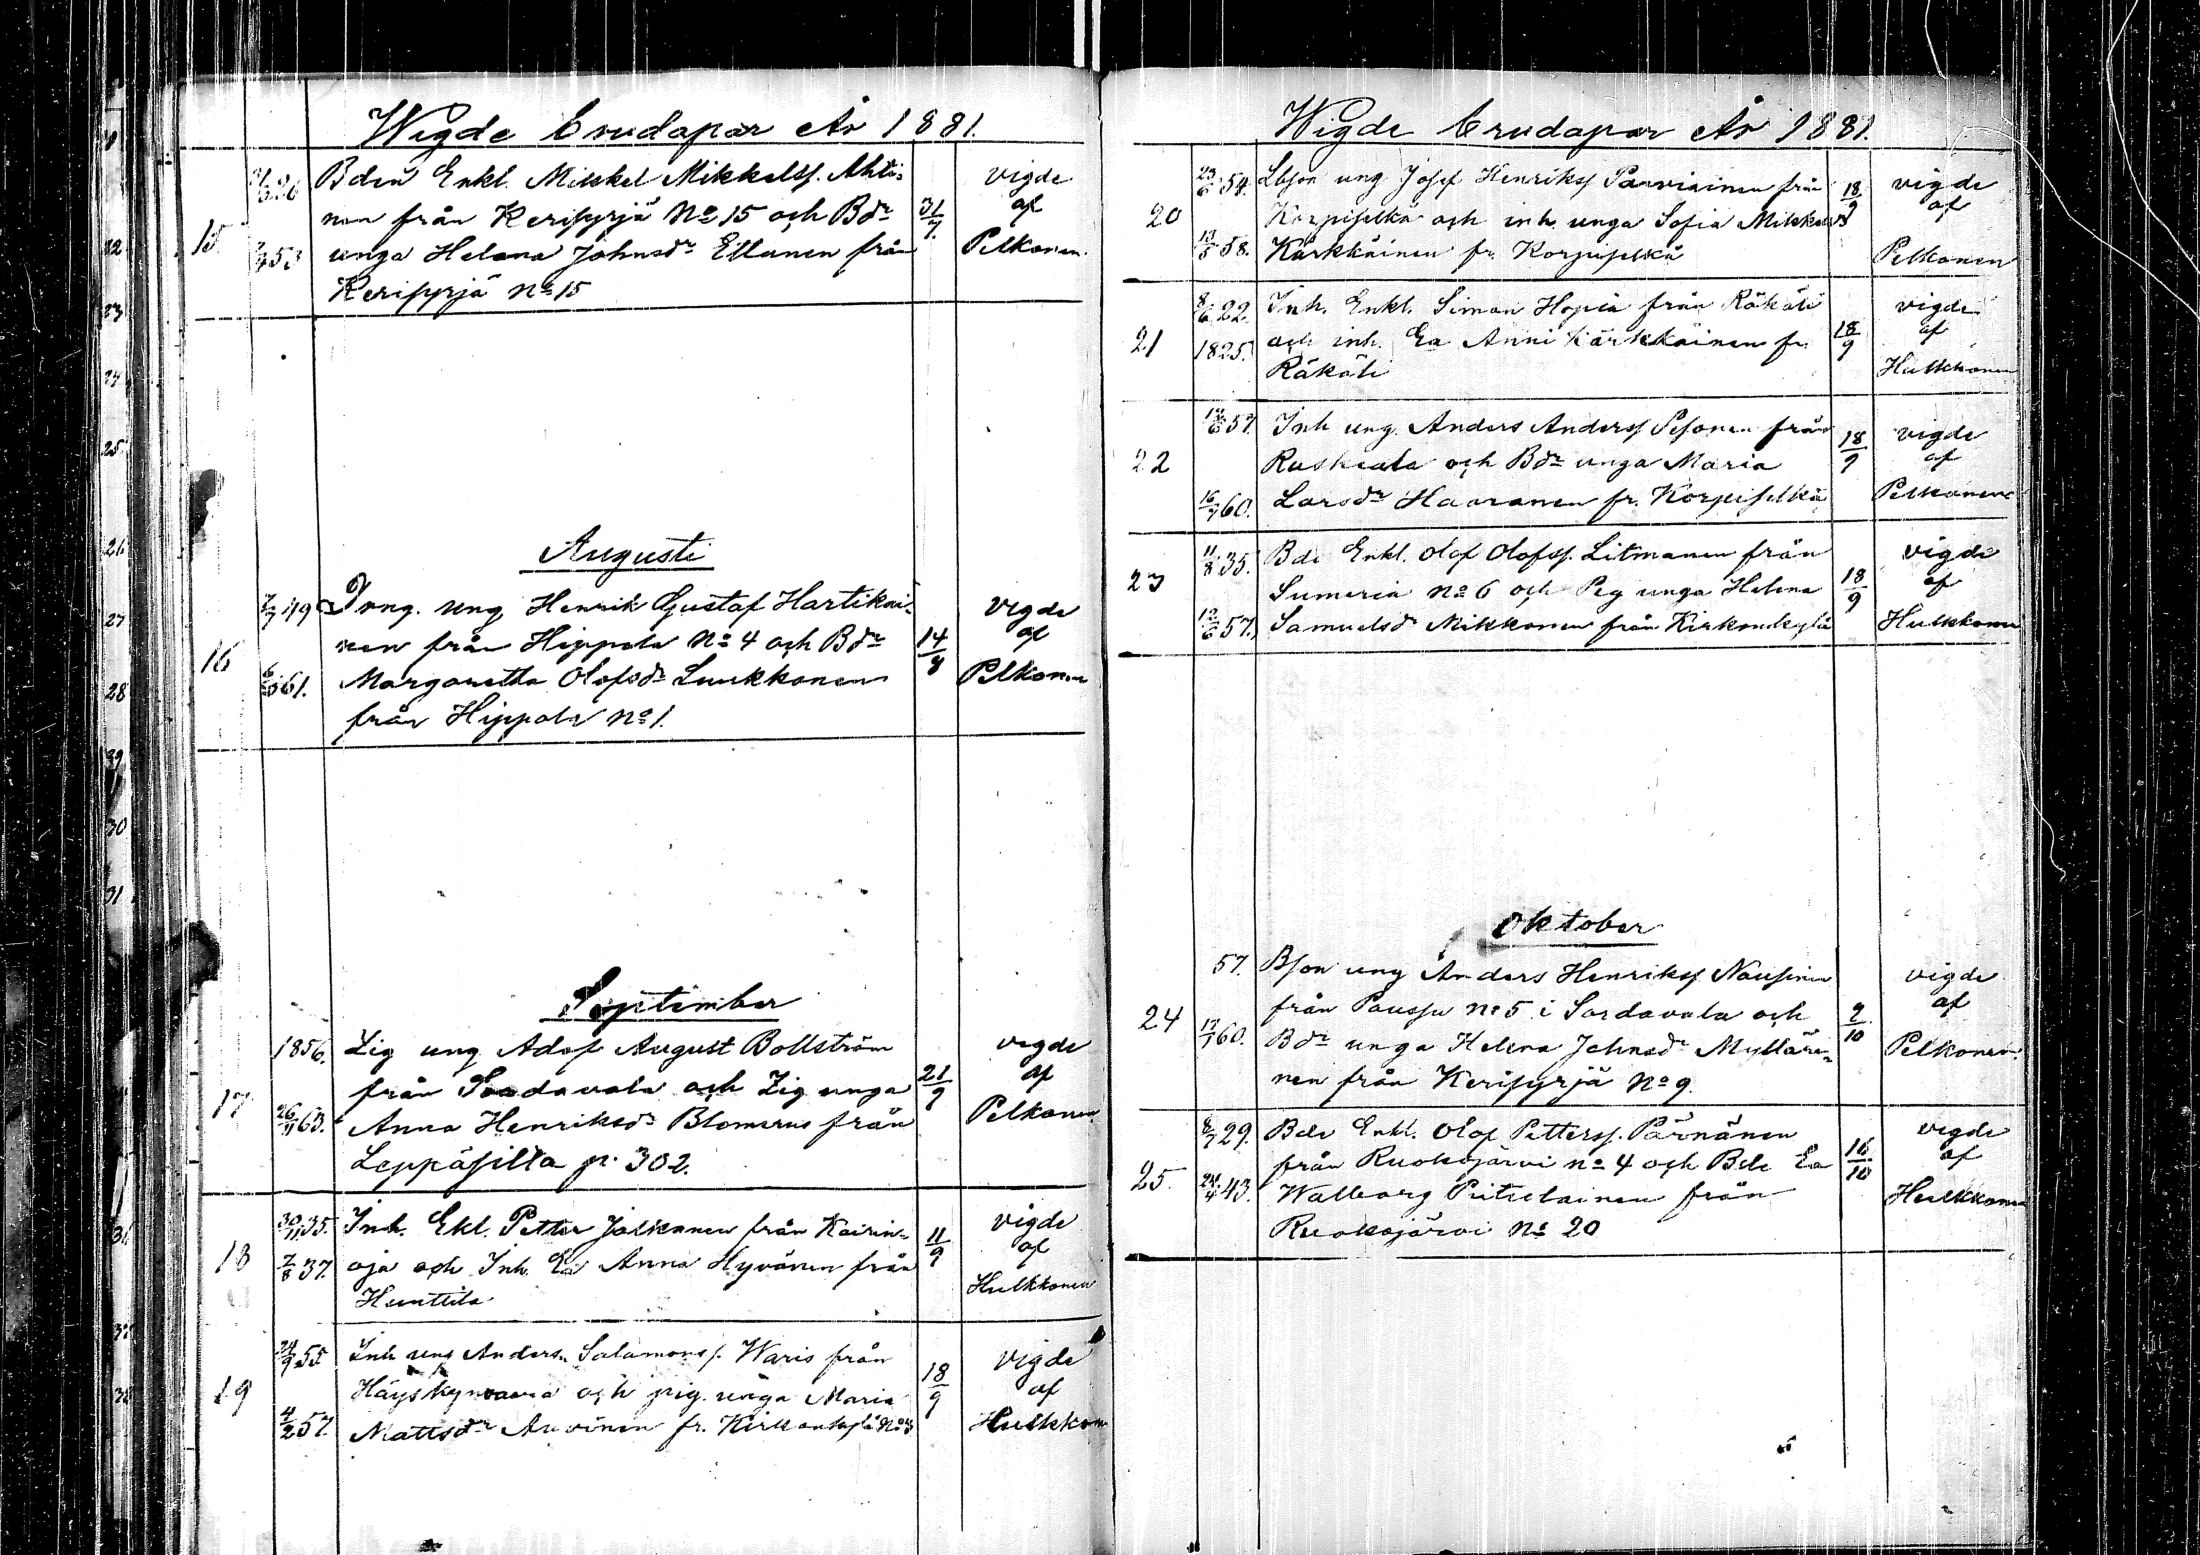 Wigde brudapar År 1881.
15
Bden Enkl. Mikkel Mikkelss. Ahti-
nen från Kerisyrjä No 15 och Bdr
31/7
unga Helena Johnsdr Ellanen från
Kerisyrjä No 15
vigde
af
Pelkonen
Augusti
16
7/7 49
6/10 61.
ung Henrik Gustaf Hartikai-
nen från Hippola No 4 och Bdr
Margaretha Olofsdr Luukkonen
från Hippola No 1.
14/8
vigde
af
Pelkonen
September
17
1856.
26/11 63.
Zig ung Adof August Bollström
från Sordavala och Zig unga
Anna Henriksdr Blomerus från
Leppäsilta p. 302.
21/9
vigde
af
Pelkonen
18
30/11 35.
7/8 37.
Inh. Ekl. Petter Jalkanen från Kairin-
oja och Inh. Ea Anna Hyvönen från
Hunttila
11/9
vigde
af
Hulkkonen
19
24/9 55
4/2 57.
Inh ung Anders Salamonss. Waris från
Häyskynvaara och pig. unga Maria
Mattsdr Auvinen fr. Kirkonkylä
18/9
vigde
af
Hulkkonen
Wigde brudapar År 1881.
20
23/6 54.
13/5 58.
Lbson ung Josef Henrikss Parviainen från
Korpiselkä och inh. unga Sofia Mikkelsdr
Kärkkäinen fr. Korpiselkä
18/9
vigde
af
Pelkonen
21
8/6 22.
1825.
Inh. Enkl. Simon Hopia från Räkäli
och inh. Ea Anni Kärkkäinen fr.
Räkäli
18/9
vigde
af
Hulkkonen
22
57.
16/7 60.
Inh ung. Anders Anderss Pesonen från
Ruskeala och Bdr unga Maria
Larsdr Haaranen fr. Korpiselkä
18/9
vigde
af
Pelkonen
23
11/8 35.
12/6 57.
Bde Enkl. Olof Olofss. Litmanen från
Sumeria No 6 och Pig unga Helena
Samuelsdr Mikkonen från Kirkonkylä
18/9
vigde
af
Hulkkonen
Oktober
24
57.
17/1 60.
Bson ung Anders Henrikss Nousinen
från Paussu No 5 i Sordavala och
Bdr unga Helena Johnsdr Mylläri-
nen från Kerisyrjä No 9.
2/10
vigde
af
Pelkonen
25.
8/7 29.
24/4 43.
Bde Enkl. Olof Petterss. Pärnänen
från Ruokojärvi No 4 och Bde Ea
Walborg Piitulainen från
Ruokojärvi No 20
16/10
vigde
af
Hulkkonen